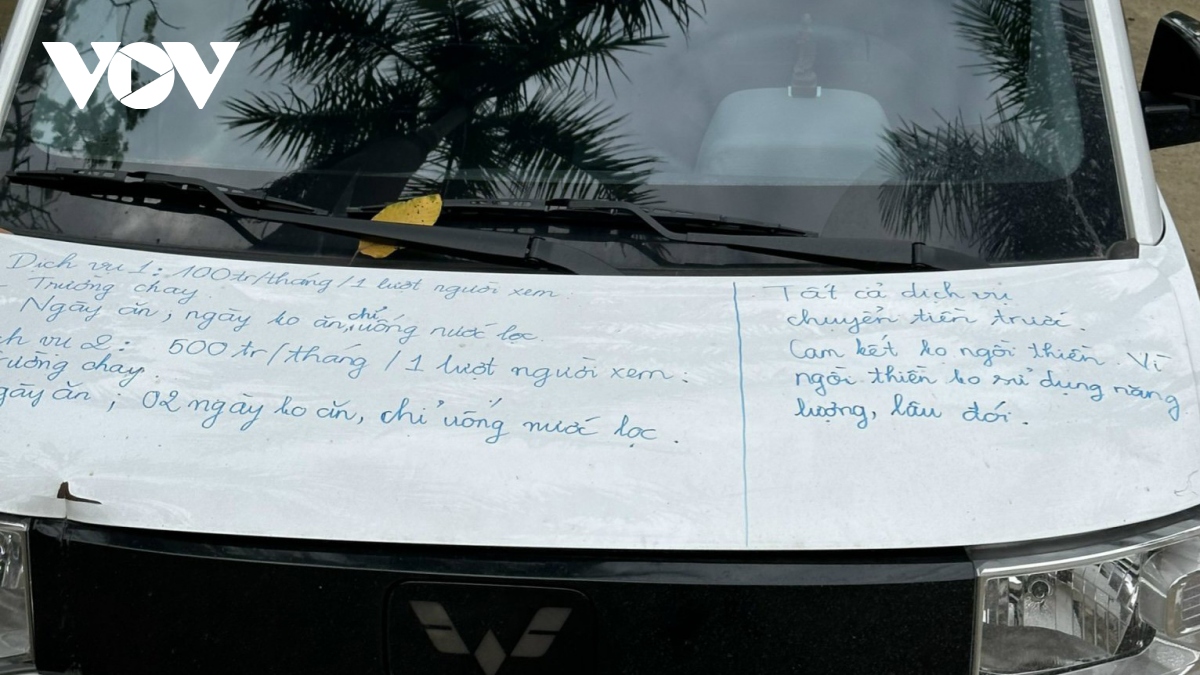 VOV
Dịch vụ 1: 100tr/tháng/1 lượt người xem
- Trường chay.
Ngày ăn, ngày ko ăn, chỉ uống nước lọc.
ch vụ 2: 500tr/tháng/1 lượt người xem:
rường chay.
gày ăn; 02 ngày ko ăn, chỉ uống nước lọc.
Tất cả dịch vụ
chuyển tiền trước.
Cam kết ko ngồi thiền. Vì
ngồi thiền ko sử dụng năng
lượng, lâu đói.